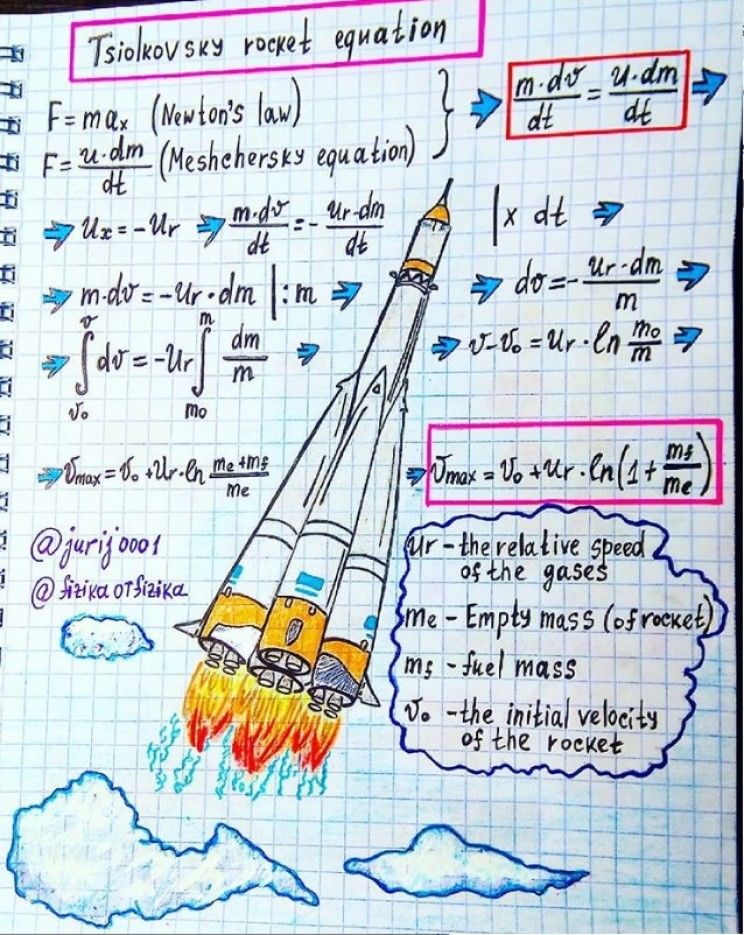 Tsiolkovsky rocket equation
F = maₓ (Newton's law)
F = u·dm/dt (Meshchersky equation)
m·dv/dt = u·dm/dt
uₓ = -ur
m·dv/dt = - ur·dm/dt | x dt
m·dv = -ur·dm | : m
dv = - ur·dm/m
∫ᵥ₀ᵛ dv = -ur ∫ₘ₀ᵐ dm/m
v-v₀ = ur·ln m₀/m
vmax = v₀ + ur·ln me+mf/me
vmax = v₀ + ur·ln(1 + mf/me)
@jurij0001
@fizikaotfizika
ur - the relative speed
of the gases
me - Empty mass (of rocket)
mf - fuel mass
v₀ - the initial velocity
of the rocket